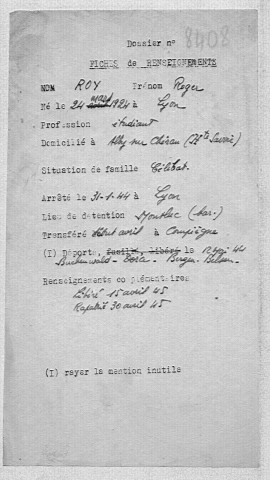 Dossier n° 8408
FICHES de RENSEIGNEMENTS
NOM ROY Prénom Roger
Né le 24 1924 à Lyon
Profession étudiant
Domicilié à Alby sur Chéran (Hte Savoie)
Situation de famille Célibat.
Arrêté le 31-1-44 à Lyon
Lieu de detention Montluc (bar.)
Transféré début avril à Compiègne
(I) Déporté, fusillé, libéré le 12 mai 44
Buchenwald - Dora - Bergen-Belsen
Renseignements complémentaires
Libéré 15 avril 45
Rapatrié 30 avril 45
(I) rayer la mention inutile